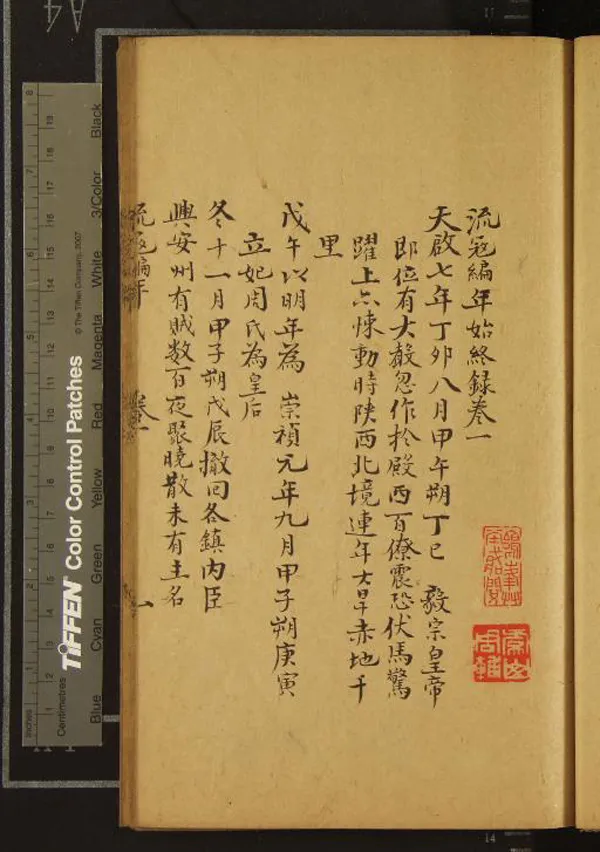 流寇編年始終録卷一
天啟七年丁卯八月甲午朔丁巳 毅宗皇帝
即位有大聲忽作於殿西百僚震恐伏馬驚
躍上亦悚動時陝西北境連年大旱赤地千
里
戊午以明年為 崇禎元年九月甲子朔庚寅
立妃周氏為皇后
冬十一月甲子朔戊辰撤回各鎮內臣
興安州有賊数百夜聚曉散未有主名
流寇編年 卷一 一
TIFFEN Color Control Patches
© The Tiffen Company, 2007
Inches
Centimetres
Blue Cyan Green Yellow Red Magenta White 3/Color Black
A4